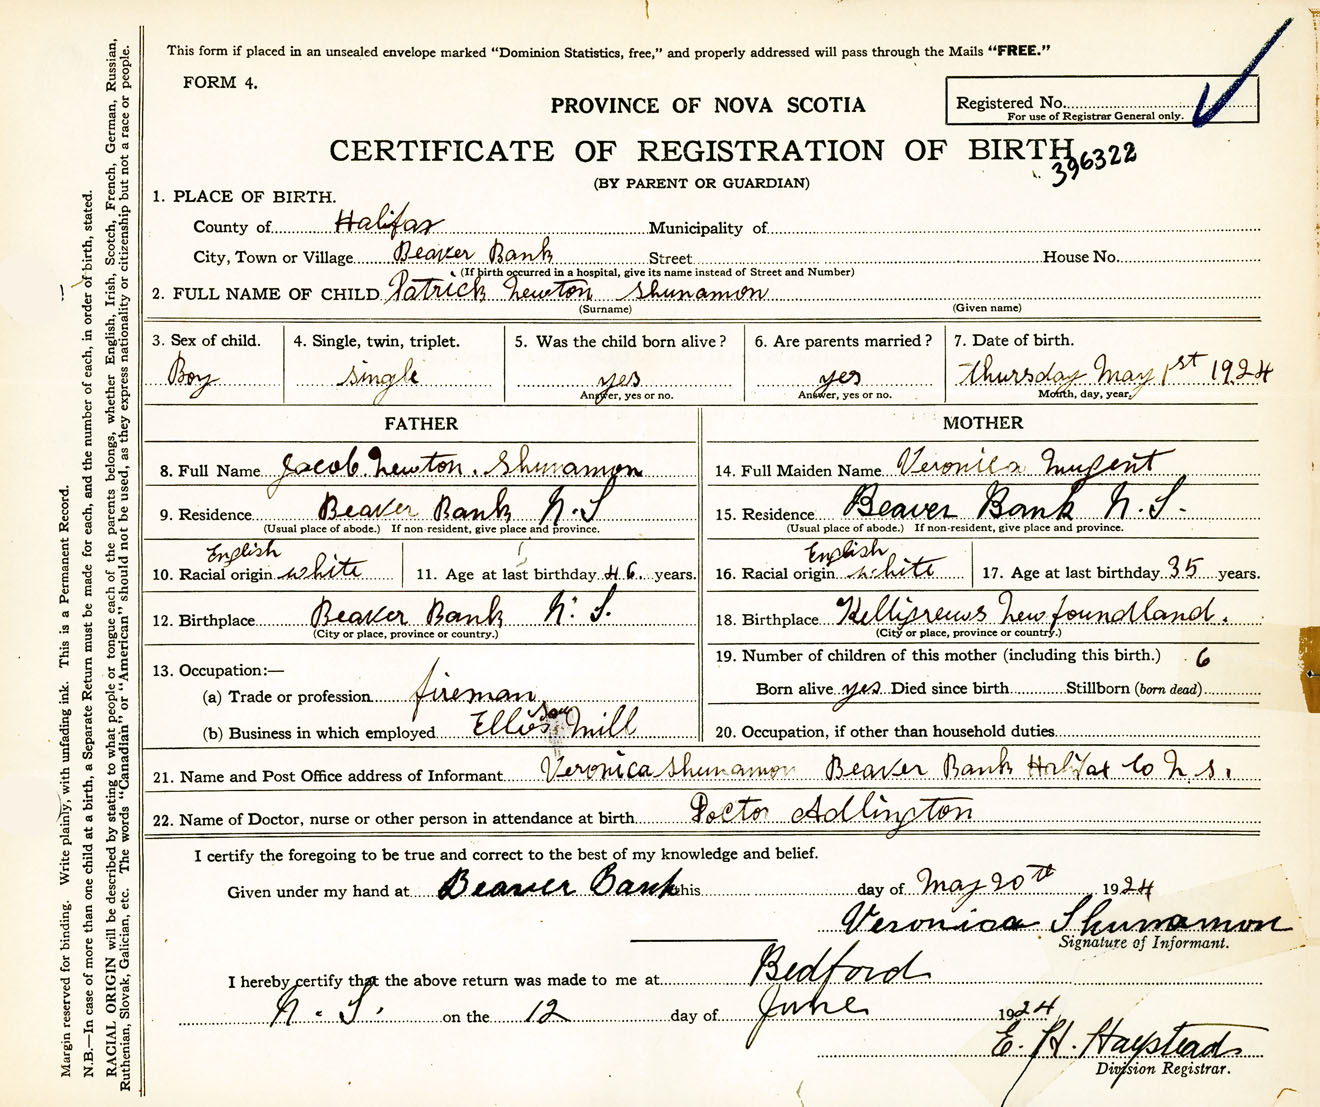 This form if placed in an unsealed envelope marked "Dominion Statistics, free," and properly addressed will pass through the Mails "FREE."
FORM 4.
PROVINCE OF NOVA SCOTIA
Registered No.
For use of Registrar General only.
CERTIFICATE OF REGISTRATION OF BIRTH
396322
(BY PARENT OR GUARDIAN)
1. PLACE OF BIRTH.
County of Halifax Municipality of
City, Town or Village Beaver Bank Street House No.
(If birth occurred in a hospital, give its name instead of Street and Number)
2. FULL NAME OF CHILD Patrick Newton Shunamon
(Surname) (Given name)
3. Sex of child. 4. Single, twin, triplet. 5. Was the child born alive? 6. Are parents married? 7. Date of birth.
Boy single yes yes Thursday May 1st 1924
Answer, yes or no. Answer, yes or no. Month, day, year.
FATHER MOTHER
8. Full Name Jacob Newton Shunamon 14. Full Maiden Name Veronica Nugent
9. Residence Beaver Bank N.S 15. Residence Beaver Bank N.S.
(Usual place of abode.) If non-resident, give place and province. (Usual place of abode.) If non-resident, give place and province.
English English
10. Racial origin white 11. Age at last birthday 46 years. 16. Racial origin white 17. Age at last birthday 35 years.
12. Birthplace Beaver Bank N.S. 18. Birthplace Kelligrews Newfoundland.
(City or place, province or country.) (City or place, province or country.)
13. Occupation:— 19. Number of children of this mother (including this birth.) 6
(a) Trade or profession fireman Born alive yes Died since birth Stillborn (born dead)
(b) Business in which employed Ellis Saw Mill 20. Occupation, if other than household duties
21. Name and Post Office address of Informant Veronica Shunamon Beaver Bank Halifax Co N.S.
22. Name of Doctor, nurse or other person in attendance at birth Docto Adlington
I certify the foregoing to be true and correct to the best of my knowledge and belief.
Given under my hand at Beaver Bank this day of May 20th 1924
Veronica Shunamon
Signature of Informant.
I hereby certify that the above return was made to me at Bedford
N.S. on the 12 day of June 1924
E. H. Haystead
Division Registrar.
Margin reserved for binding. Write plainly, with unfading ink. This is a Permanent Record.
N.B.—In case of more than one child at a birth, a Separate Return must be made for each, and the number of each, in order of birth, stated.
RACIAL ORIGIN will be described by stating to what people or tongue each of the parents belongs, whether English, Irish, Scotch, French, German, Russian,
Ruthenian, Slovak, Galician, etc. The words "Canadian" or "American" should not be used, as they express nationality or citizenship but not a race or people.